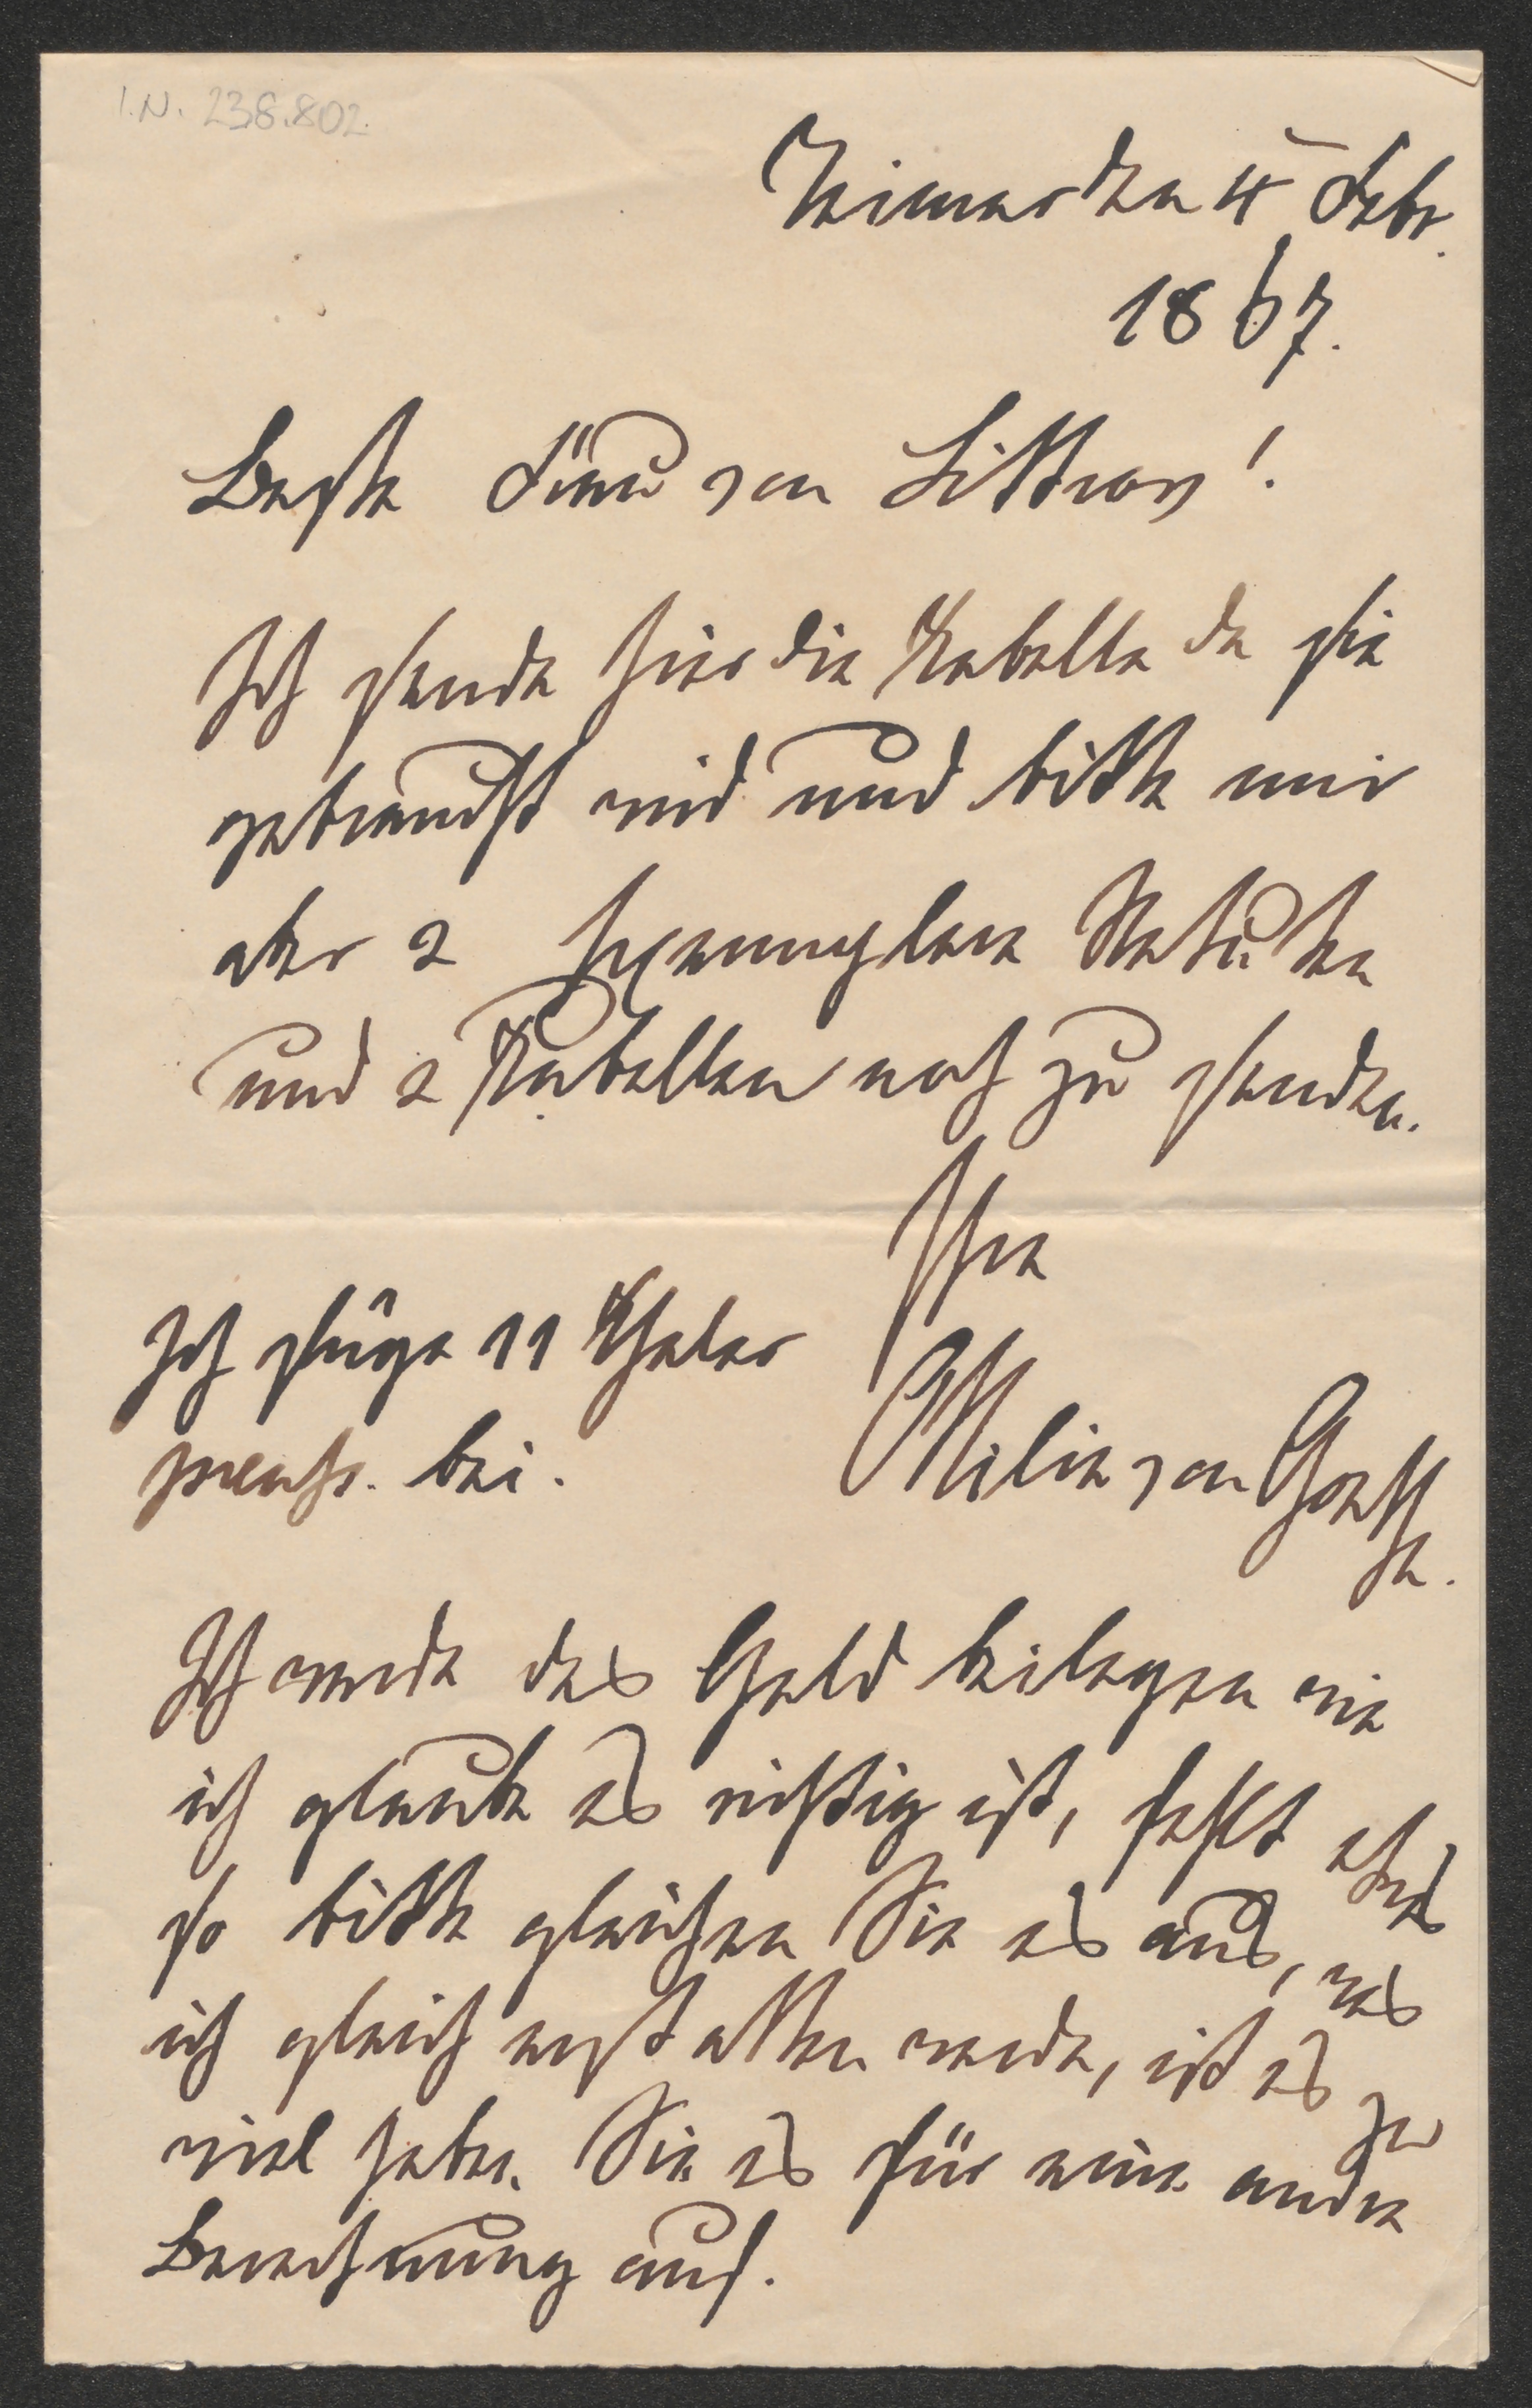 I.N. 238.802.
Weimar den 4 Febr.
1867.
Beste Frau von Littrow!
Ich sende hier die Tabelle da sie
gebraucht wird und bitte mir
aber 2 Exemplare Statuten
und 2 Tabellen noch zu senden.
Ihre
Ottilie von Goethe.
Ich füge 11 Thaler
preuss. bei.
Ich werde das Geld beilegen wie
ich glaube es richtig ist, fehlt etwas
so bitte gleichen Sie es aus, was
ich gleich erstatten werde, ist es zu
viel heben Sie es für eine andre
Berechnung auf.